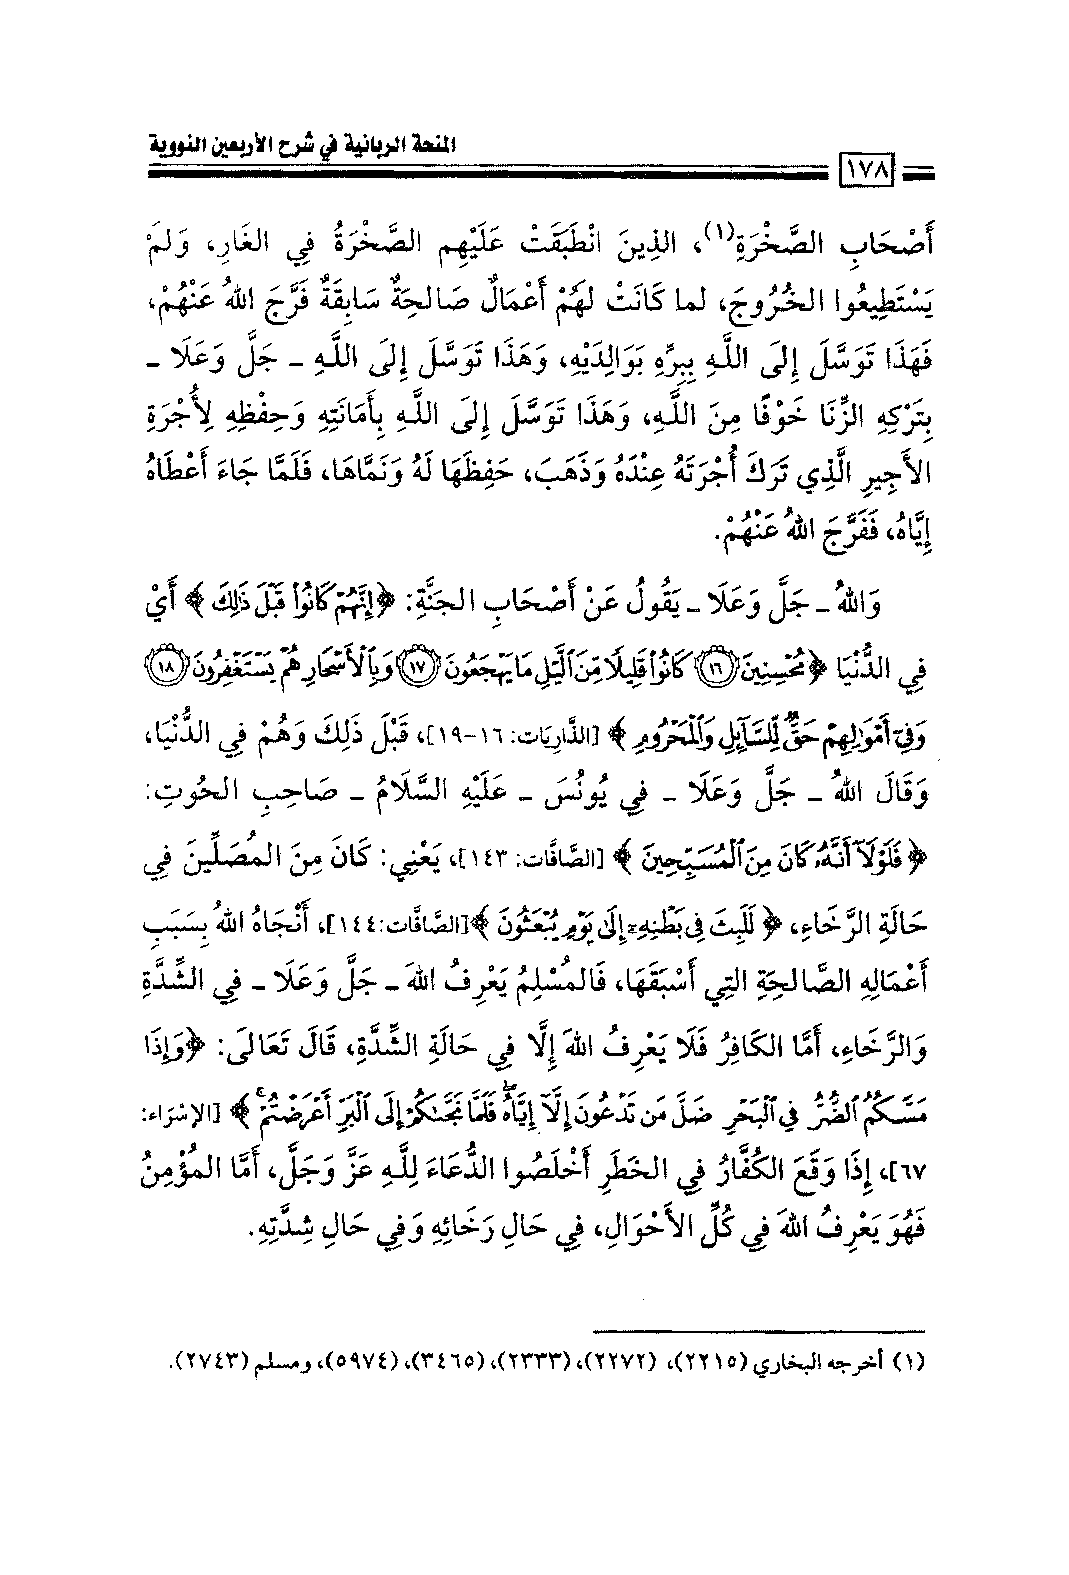 المنحة الربانية في شرح الأربعين النووية
١٧٨
أَصْحَابِ الصَّخْرَةِ(١)، الذِينَ انْطَبَقَتْ عَلَيْهِم الصَّخْرَةُ فِي الغَارِ، وَلَمْ
يَسْتَطِيعُوا الخُرُوجَ، لما كَانَتْ لهُمْ أَعْمَالٌ صَالِحَةٌ سَابِقَةٌ فَرَّجَ اللهُ عَنْهُمْ،
فَهَذَا تَوَسَّلَ إِلَى اللَّهِ بِبِرِّهِ بَوَالِدَيْهِ، وَهَذَا تَوَسَّلَ إِلَى اللَّهِ - جَلَّ وَعَلَا -
بِتَرْكِهِ الزِّنَا خَوْفًا مِنَ اللَّهِ، وَهَذَا تَوَسَّلَ إِلَى اللَّهِ بِأَمَانَتِهِ وَحِفْظِهِ لِأُجْرَةِ
الأَجِيرِ الَّذِي تَرَكَ أُجْرَتَهُ عِنْدَهُ وَذَهَبَ، حَفِظَهَا لَهُ وَنَمَّاهَا، فَلَمَّا جَاءَ أَعْطَاهُ
إِيَّاهُ، فَفَرَّجَ اللهُ عَنْهُمْ.
وَاللهُ - جَلَّ وَعَلَا - يَقُولُ عَنْ أَصْحَابِ الجَنَّةِ: ﴿إِنَّهُمْ كَانُوا۟ قَبْلَ ذَٰلِكَ﴾ أَيْ
فِي الدُّنْيَا ﴿مُحْسِنِينَ ۝١٦ كَانُوا۟ قَلِيلًا مِّنَ ٱلَّيْلِ مَا يَهْجَعُونَ ۝١٧ وَبِٱلْأَسْحَارِ هُمْ يَسْتَغْفِرُونَ ۝١٨
وَفِىٓ أَمْوَٰلِهِمْ حَقٌّ لِّلسَّآئِلِ وَٱلْمَحْرُومِ﴾ [الذَّارِيَات: ١٦-١٩]، قَبْلَ ذَلِكَ وَهُمْ فِي الدُّنْيَا،
وَقَالَ اللهُ - جَلَّ وَعَلَا - فِي يُونُسَ - عَلَيْهِ السَّلَامُ - صَاحِبِ الحُوتِ:
﴿فَلَوْلَآ أَنَّهُۥ كَانَ مِنَ ٱلْمُسَبِّحِينَ﴾ [الصَّافَّات: ١٤٣]، يَعْنِي: كَانَ مِنَ المُصَلِّينَ فِي
حَالَةِ الرَّخَاءِ، ﴿لَلَبِثَ فِى بَطْنِهِۦٓ إِلَىٰ يَوْمِ يُبْعَثُونَ﴾[الصَّافَّات:١٤٤]، أَنْجَاهُ اللهُ بِسَبَبِ
أَعْمَالِهِ الصَّالحِةِ التِي أَسْبَقَهَا، فَالمُسْلِمُ يَعْرِفُ اللهَ - جَلَّ وَعَلَا - فِي الشِّدَّةِ
وَالرَّخَاءِ، أَمَّا الكَافِرُ فَلَا يَعْرِفُ اللهَ إِلَّا فِي حَالَةِ الشِّدَّةِ، قَالَ تَعَالَى: ﴿وَإِذَا
مَسَّكُمُ ٱلضُّرُّ فِى ٱلْبَحْرِ ضَلَّ مَن تَدْعُونَ إِلَّآ إِيَّاهُ ۖ فَلَمَّا نَجَّىٰكُمْ إِلَى ٱلْبَرِّ أَعْرَضْتُمْ ۚ﴾ [الإِسْرَاء:
٦٧]، إِذَا وَقَعَ الكُفَّارُ فِي الخَطَرِ أَخْلَصُوا الدُّعَاءَ لِلَّهِ عَزَّ وَجَلَّ، أَمَّا المُؤْمِنُ
فَهُوَ يَعْرِفُ اللهَ فِي كُلِّ الأَحْوَالِ، فِي حَالِ رَخَائِهِ وَفِي حَالِ شِدَّتِهِ.
(١) أخرجه البخاري (٢٢١٥)، (٢٢٧٢)، (٢٣٣٣)، (٣٤٦٥)، (٥٩٧٤)، ومسلم (٢٧٤٣).